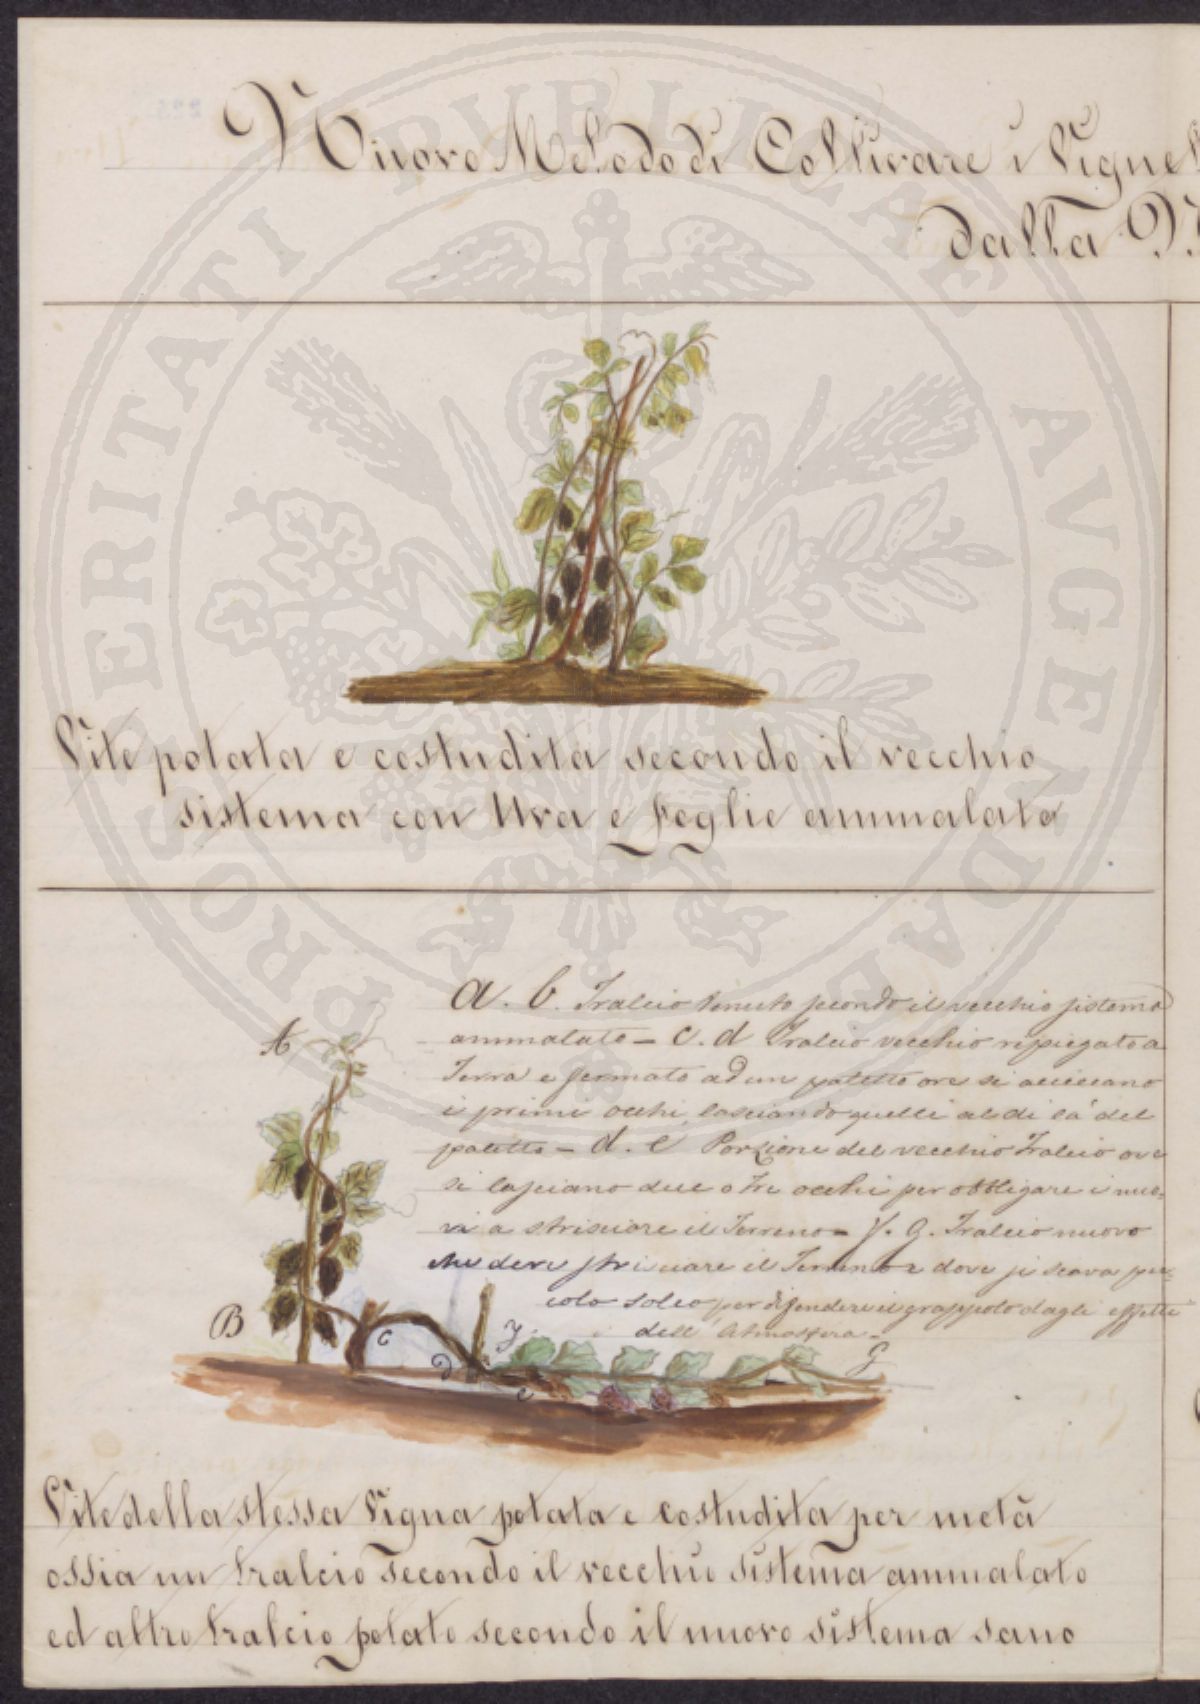 Nuovo Metodo di Coltivare i Vignet
dalla
Vite potata e costudita secondo il vecchio
sistema con Uva e foglie ammalate
a. b. Tralcio tenuto secondo il vecchio sistema
ammalato – c. d Tralcio vecchio ripiegato a
Terra e fermato ad un paletto ove si accecano
i primi occhi, lasciando quelli al di là del
paletto – d. e Porzione del vecchio Tralcio ove
si lasciano due o tre occhi per obbligare i nuo-
vi a strisciare il Terreno – f. g. Tralcio nuovo
che deve strisciare il Terreno e dove si scava pic-
colo solco per difendere il grappolo dagli effetti
dell' Atmosfera –
A
B
c
d
e
f
g
Vite della stessa Vigna potata e costudita per metà
ossia un tralcio secondo il vecchio sistema ammalato
ed altro tralcio potato secondo il nuovo sistema sano
PROSPERITATI PVBLICAE AVGENDAE